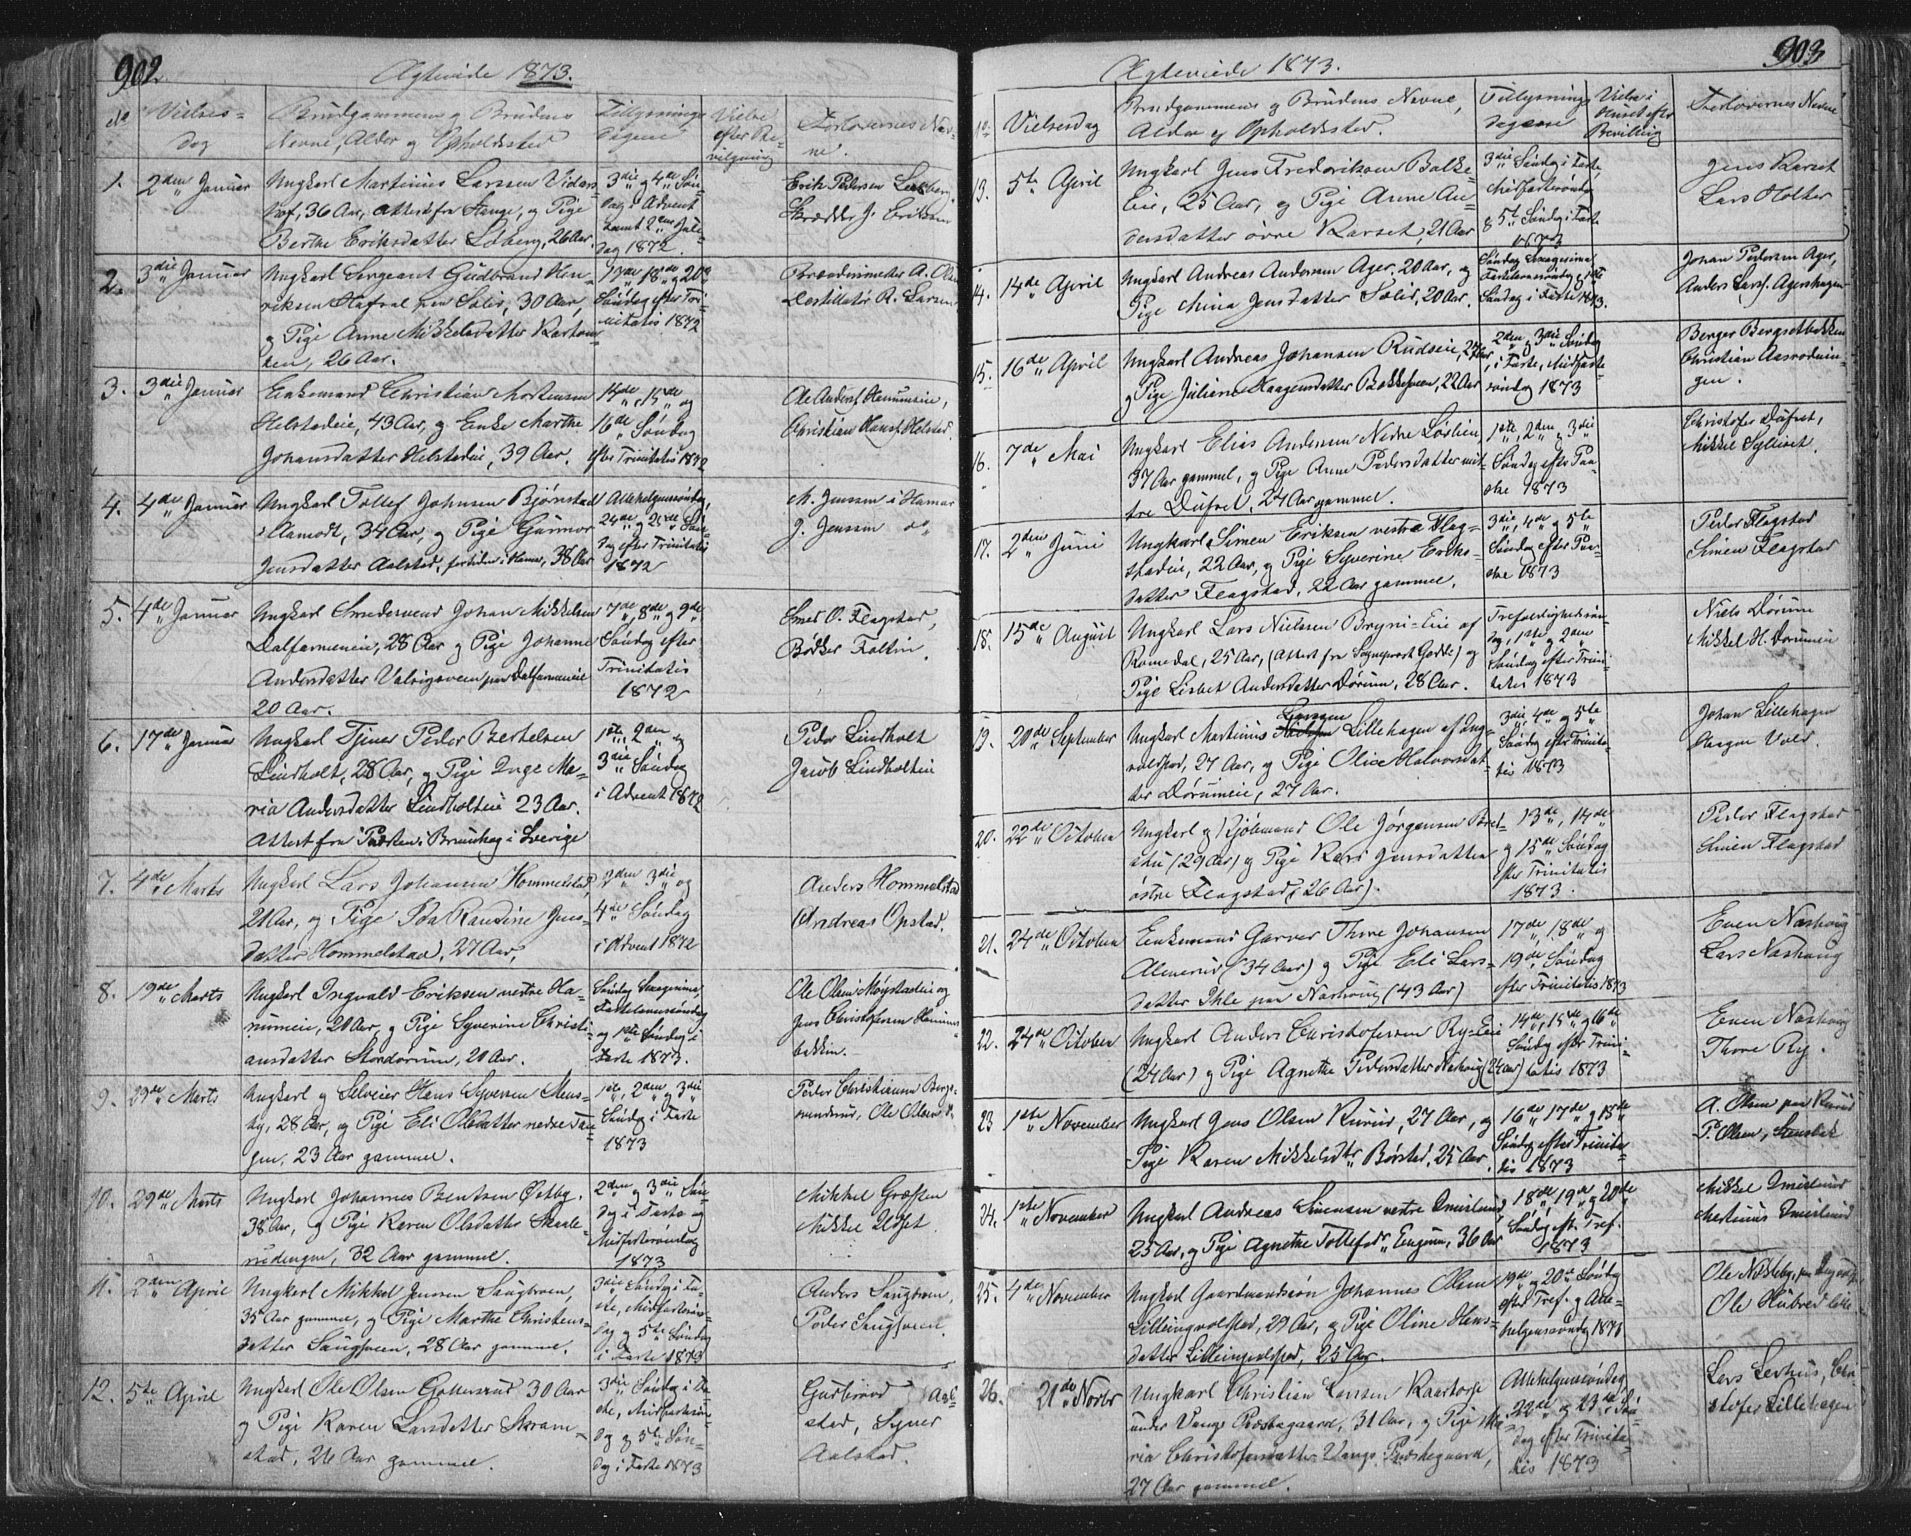 902
Ægteviede 1873.
No
Vielses-
dag
Brudgommens og Brudens
Nevne, Alder og Opholdssted
Tillysnings
dagene
Vielse
efter Be-
vilgning
Forlovernes Nav-
ne.
1.
2den Januar
Ungkarl Martinus Larssen Vidars-
hof, 36 Aar, Attest fra Stange, og Pige
Berthe Eriksdatter Løberg, 26 Aar.
3die og 4de Søn-
dag i Advent
samt 2en Jule-
dag 1872.
Erik Pedersen
Skrædder J. Eriksen
2.
3die Januar
Ungkarl Sergeant Gudbrand Hen-
riksen Solis, 30 Aar,
og Pige Anne Mikkelsdatter
26 Aar.
17de, 18de og 20de
Søndag efter Tri-
nitatis 1872
A. Olsen
Destillatør R. Larsen
3.
3die Januar
Enkemand Christian Mortensen
Helstadeie, 43 Aar, og Enke Marthe
Johansdatter Helstadeie, 39 Aar.
14de, 15de og
16de Søndag
efter Trinitatis 1872
Christian Hans. Helstad.
4.
4de Januar
Ungkarl Tollef Johnsen Bjørnstad
i Aamodt, 34 Aar, og Pige Gunnor
Jensdatter Aalstad, fortiden i Hamar, 38 Aar
Allehelgenssøndag,
24de og 25de Søn-
dag efter Trinitatis
1872
M. Jenssen i Hamar
J. Jenssen do
5.
4de Januar
Ungkarl Johan Mikkelsen
Dalfarmeneie, 28 Aar og Pige Johanne
Andersdatter Dalfarmeneie
20 Aar.
7de, 8de og 9de
Søndag efter
Trinitatis
1872
O. Flagstad,
Bødker Foltin.
6.
17de Januar
Ungkarl Tjener Peder Bertelsen
Lindholt, 28 Aar, og Pige Inge Ma-
ria Andersdatter Lindholteie 23 Aar.
Attest fra i Sverige
1ste, 2den og
3die Søndag
i Advent 1872
Peder Lindholt
Jacob Lindholteie
7.
4de Marts
Ungkarl Lars Johansen Hommelstad,
21 Aar, og Pige Randine Jens-
datter Hommelstad, 27 Aar,
2den 3die og
4de Søndag
i Advent 1872
Anders Hommelstad
Andreas Opstad.
8.
19de Marts
Ungkarl Ingvald Eriksen vestre Ha-
rumeie, 20 Aar, og Pige Syverine Christi-
ansdatter Stordorum, 20 Aar.
Søndag Sexagesima,
Fastelavnssøndag
og 1ste Søndag i
Faste 1873.
Ole Olsen og
Jens Christofersen
9.
29de Marts
Ungkarl og Selveier Hans Syversen Mens-
by, 28 Aar, og Pige Eli Olsdatter nedre Tan-
gen, 23 Aar gammel.
1ste, 2den og 3die
Søndag i Faste
1873
Peder Christiansen
Ole Olsen
10.
29de Marts
Ungkarl Johannes Bentsen Østby.
38 Aar, og Pige Karen Olsdatter Skaale-
rudengen, 32 Aar gammel.
2den og 3die Søn-
dag i Faste og
Midfastesøndag
1873
Mikkel Græsten
Mikkel
11.
2den April
Ungkarl Mikkel Jensen Saugsveen,
35 Aar gammel, og Pige Marthe Christens-
datter Saugsveen, 28 Aar gammel.
3die Søndag i Fa-
ste, Midfastesøn-
dag og 5te Søndag
i Faste 1873
Anders Saugsveen,
Peder Saugsveen.
12.
5te April
Ungkarl Ole Olsen Gottersrud 30 Aar
og Pige Karen Larsdatter Skram-
stad, 26 Aar gammel.
3die Søndag i Fa-
ste, Midfastesøn-
dag og 5te Søn-
dag i Faste 1873
Gudbrand Aal-
stad, Syver
Aalstad.
903
Ægteviede 1873.
No
Vielsesdag
Brudgommens og Brudens Nevne,
Alder og Opholdssted.
Tillysnings
dagene
Vielse i
Huset efter
Bevilling
Forlovernes Nevne
13.
5te April
Ungkarl Jens Frederiksen Bakke-
eie, 25 Aar, og Pige Anne An-
dersdatter øvre Karset, 21 Aar
3die Søndag i Faste,
Midfastesøndag
& 5te Søndag i Faste
1873
Jens Karset
Lars Holter
14.
14de April
Ungkarl Andreas Andersen Ager, 20 Aar, og
Pige Mina Jensdatter Solid, 20 Aar.
Søndag Sexagesima,
Fastelavnssøndag, 1ste
Søndag i Faste 1873.
Johan Pedersen Ager,
Anders Lars. Agershagen
15.
16de April
Ungkarl Andreas Johansen Rudseie,
og Pige Juliane Haagensdatter Bakkesveen, 22 Aar
2den og 3die Søndag
i Faste, Midfaste-
søndag 1873
Berger Bergsetbakken
Christian Aasrodnin-
gen.
16.
7de Mai
Ungkarl Elias Andersen Nedre Løslien
37 Aar gammel, og Pige Anne Pedersdatter mit-
tre Dufset, 27 Aar gammel.
1ste, 2den, og 3die
Søndag efter Paa-
ske 1873
Christofer Dufset,
Mikkel
17.
2den Juni
Ungkarl Simen Eriksen vestre Flag-
stadeie, 22 Aar, og Pige Syverine Eriks-
datter Flagstad, 22 Aar gammel.
3die, 4de og 5te
Søndag efter Paa-
ske 1873
Peder Flagstad
Simen Flagstad
18.
15de August
Ungkarl Lars Nielsen Bryni-Eie af
Romedal, 25 Aar, (Attest fra Sogneprest Gedde) og
Pige Lisbet Andersdatter Dørum, 28 Aar.
Trefoldighedssøn-
dag, 1ste og 2den
Søndag efter Trini-
tatis 1873
Niels Dørum
Mikkel H. Dørumeie
19.
20de September
Ungkarl Martinus Larssen Lillehagen af Ing-
valdstad, 27 Aar, og Pige Oliae Halvorsdat-
ter Dørumeie, 27 Aar.
3die, 4de og 5te
Søndag efter Trinita-
tis 1873
Johan Lillehagen
Haagen Vold.
20.
22de October
Ungkarl og Kjøbmand Ole Jørgensen
(29 Aar) og Pige Kari Jensdatter
østre Flagstad (26 Aar).
13de, 14de
og 15de Søndag
efter Trinitatis
1873.
Peder Flagstad
Simen Flagstad
21.
24de October
Enkemand Garver Thore Johansen
Almerud (34 Aar) og Pige Eli Lars-
datter Ihle paa Nashoug (43 Aar)
17de, 18de og
19de Søndag
efter Trinitatis 1873
Even Nashoug
Lars Nashoug
22.
24de October
Ungkarl Anders Christofersen Ry-Eie
(24 Aar) og Pige Agnethe Pedersdatter Nashoug (24 Aar)
14de, 15de og 16de
Søndag efter Trini-
tatis 1873
Even Nashoug
Thore Ry.
23
1ste November
Ungkarl Jens Olsen Rurud, 27 Aar, og
Pige Karen Mikkelsdtr Børsted, 25 Aar.
16de, 17de og 18de
Søndag efter Trinita-
tis 1873
A. Olsen paa Rurud
P. Olsen,
24.
1ste November
Ungkarl Andreas Simensen vestre Imerslund,
25 Aar, og Pige Agnethe Tollefsd. Engum, 36 Aar
18de, 19de og 20de
Søndag eft. Tref.
1873
Mikkel Imerslund
Martinus Imerslund
25.
4de November
Ungkarl Gaardmandssøn Johannes Olsen
Lilleingvalstad, 29 Aar, og Pige Oline Hans-
datter Lilleingvalstad, 25 Aar.
19de og 20de Søndag
efter Tref. og Alle-
helgenssøndag 1873
Ole
Ole
26.
21de Novbr
Ungkarl Christian Larsen Kaatorp
under Vangs Præstegaard, 31 Aar, og Pige Ma-
ria Christofersdatter Vangs Præstegaard,
27 Aar gammel.
Allehelgenssøndag
22de og 23de Søn-
dag efter Trinita-
tis 1873
Lars Chri-
stofer Lillehagen